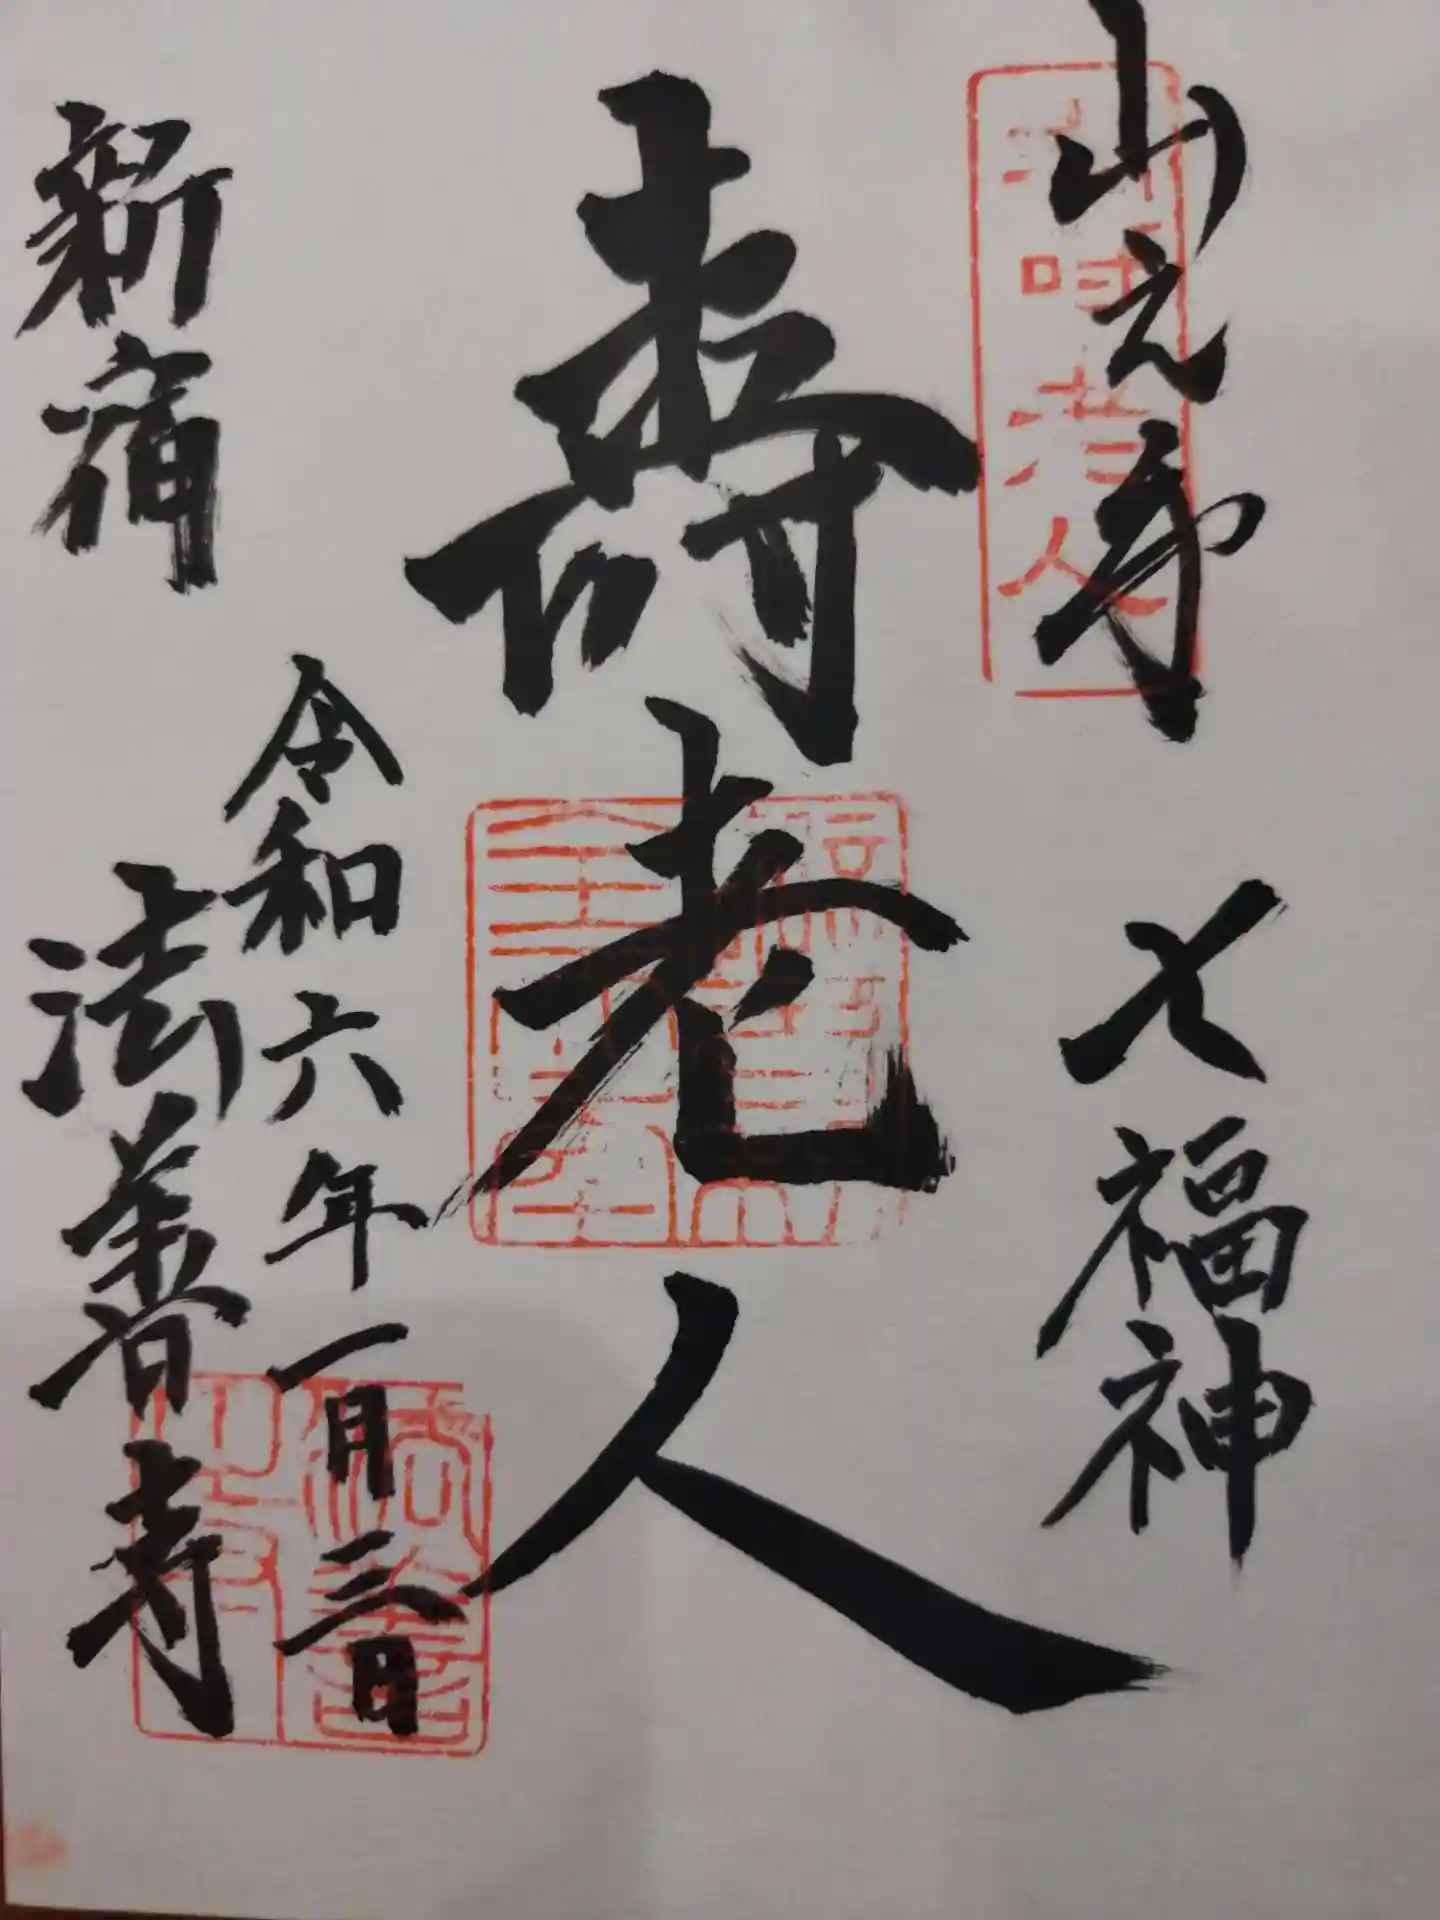 山之手
七福神
寿老人
令和六年一月三日
新宿
法善寺